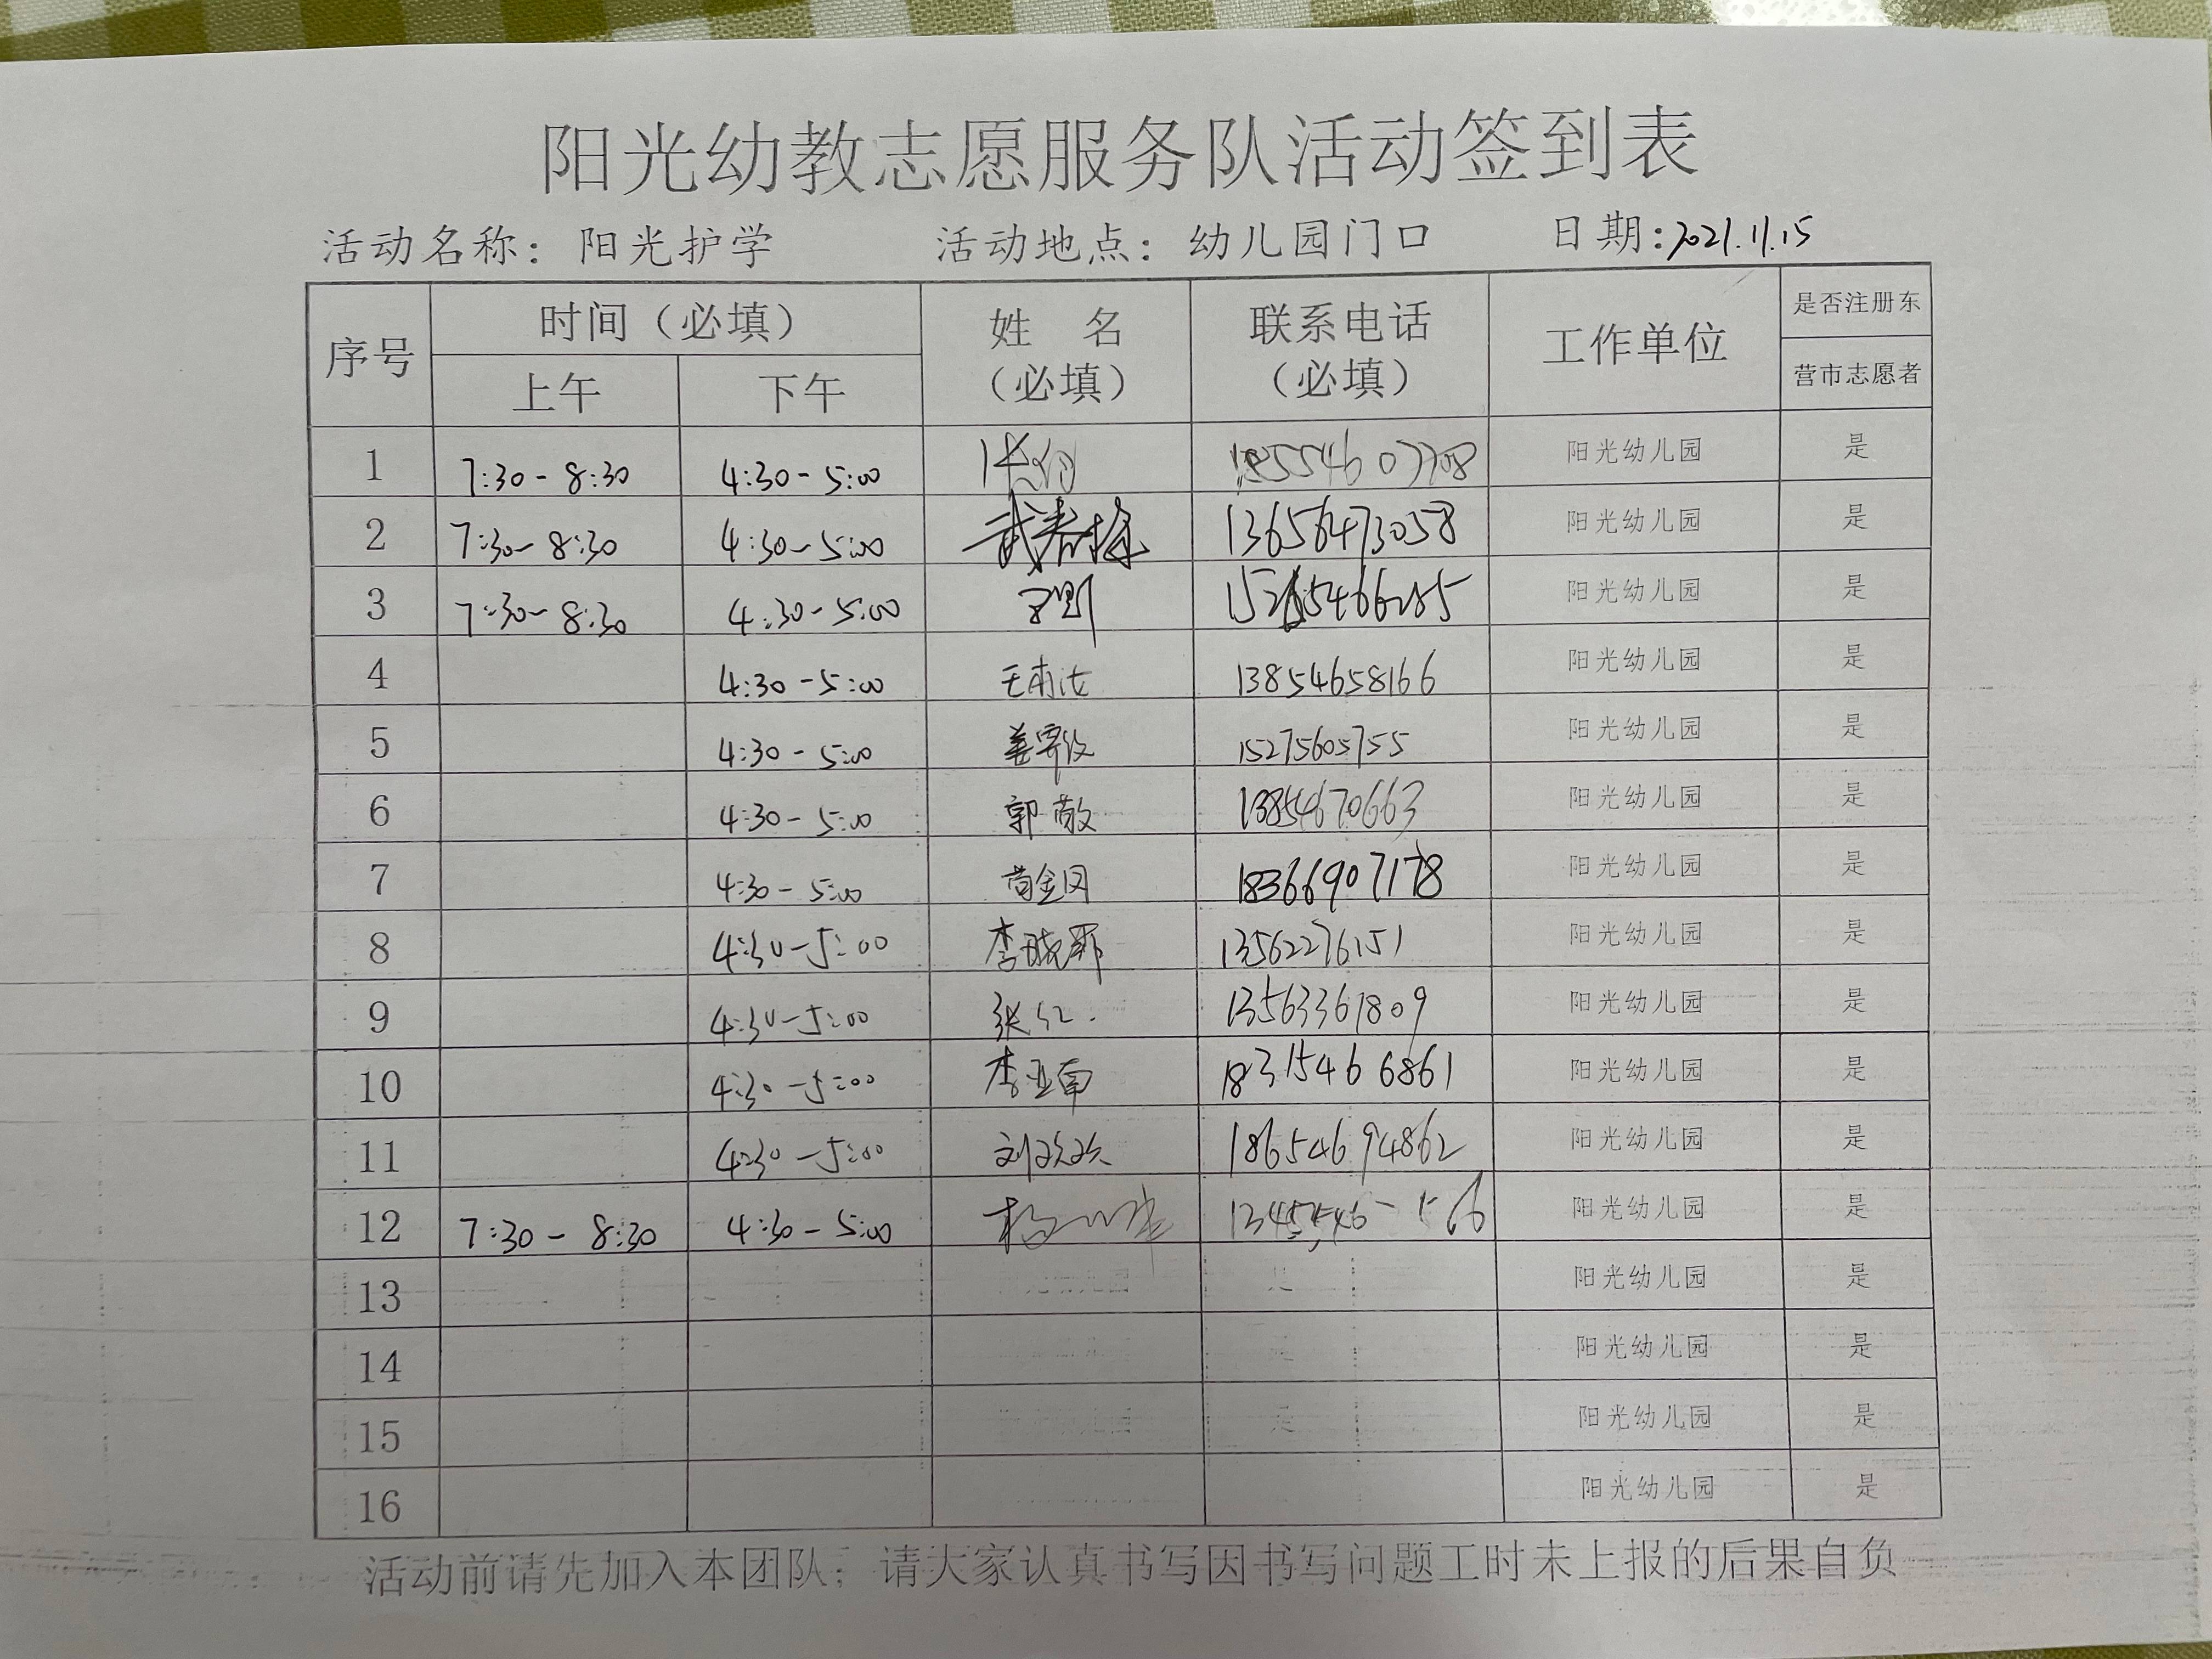 阳光幼教志愿服务队活动签到表
活动名称：阳光护学 活动地点：幼儿园门口 日期：2021.11.15
序号 时间（必填） 姓 名（必填） 联系电话（必填） 工作单位 是否注册东营市志愿者
上午 下午
1 7:30-8:30 4:30-5:00 阳光幼儿园 是
2 7:30-8:30 4:30-5:00 13656473058 阳光幼儿园 是
3 7:30-8:30 4:30-5:00 15265466285 阳光幼儿园 是
4 4:30-5:00 13854658166 阳光幼儿园 是
5 4:30-5:00 15275605755 阳光幼儿园 是
6 4:30-5:00 郭敬 13854670663 阳光幼儿园 是
7 4:30-5:00 18366907178 阳光幼儿园 是
8 4:30-5:00 13562276151 阳光幼儿园 是
9 4:30-5:00 张红 13563361809 阳光幼儿园 是
10 4:30-5:00 李亚南 18315466861 阳光幼儿园 是
11 4:30-5:00 刘欢欢 18654694862 阳光幼儿园 是
12 7:30-8:30 4:30-5:00 阳光幼儿园 是
13 阳光幼儿园 是
14 阳光幼儿园 是
15 阳光幼儿园 是
16 阳光幼儿园 是
活动前请先加入本团队；请大家认真书写因书写问题工时未上报的后果自负